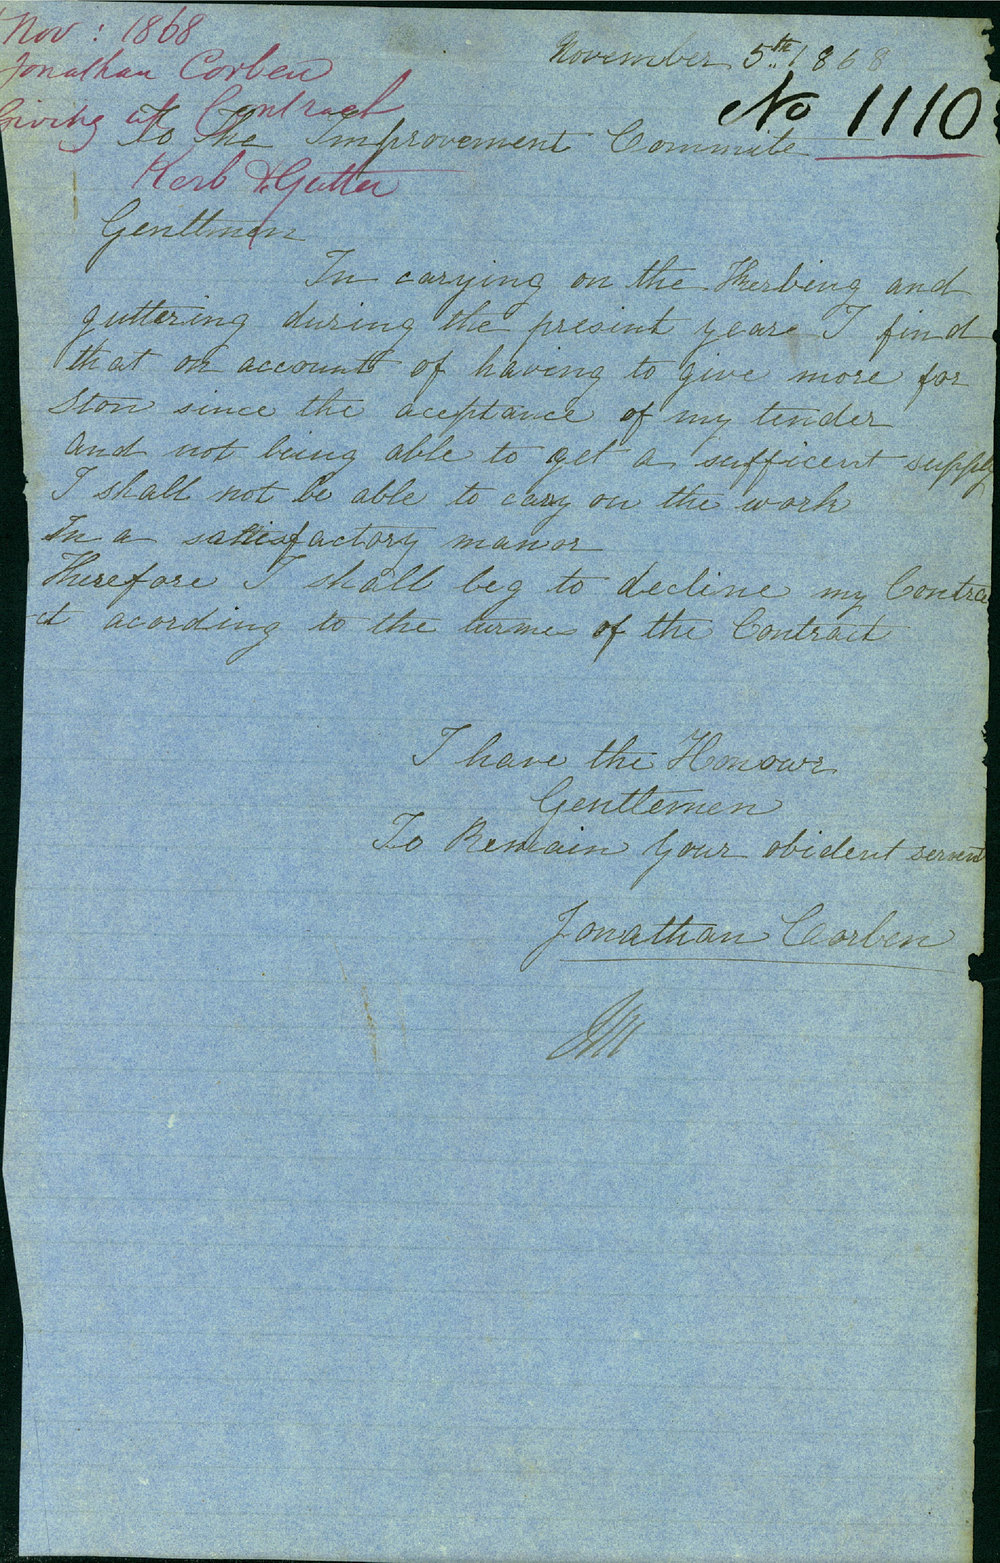 Nov : 1868
Jonathan Corben
Giving up Contract
Kerb & Gutter
November 5th 1868
No 1110
To the Improvement Commite
Genttmen
In carying on the Kerbing and
guttering during the present year I find
that on account of having to give more for
Ston since the aceptance of my tender
And not being able to get a sufficent supply
I shall not be able to cary on the work
In a satisfactory manor
Therefore I shall beg to decline my Contra
ct acording to the turms of the Contract
I have the Honour
Genttemen
To Remain your obident servent
Jonathan Corben